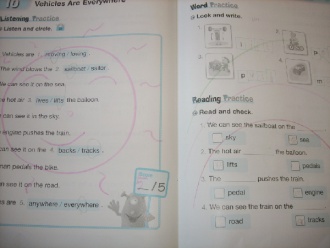 10 Vehicles Are Everywhere
Listening Practice
Listen and circle.
Vehicles are 1. moving / having
The wind blows the 2. sailboat / sailor
We can see it on the sea.
The hot air 3. lives / lifts the balloon.
can see it in the sky.
engine pushes the train.
can see it on the 4. backs / tracks
pedals the bike.
can see it on the road.
are 5. anywhere / everywhere
2/5
Word Practice
Look and write.
1.
2.
p
3.
4.
p
m
Reading Practice
Read and check.
1. We can see the sailboat on the
sky
sea
2. The hot air the balloon.
lifts
pedals
3. The pushes the train.
pedal
engine
4. We can see the train on the
road
tracks